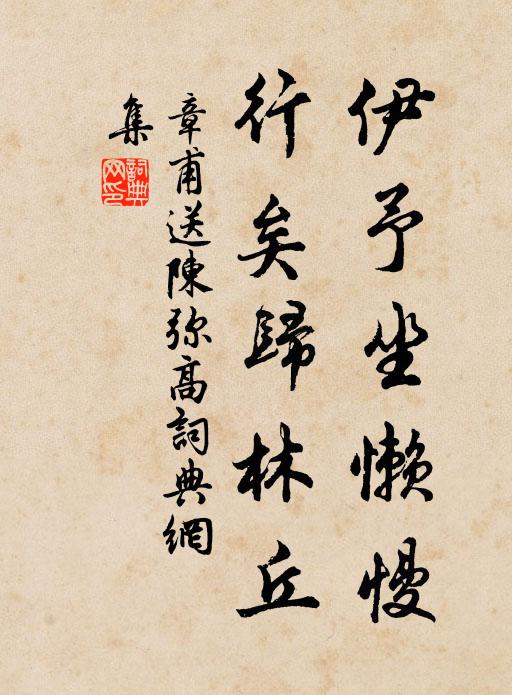 伊予坐懶慢
行矣歸林丘
章甫送陳弥高詞典網
集
詞典網印